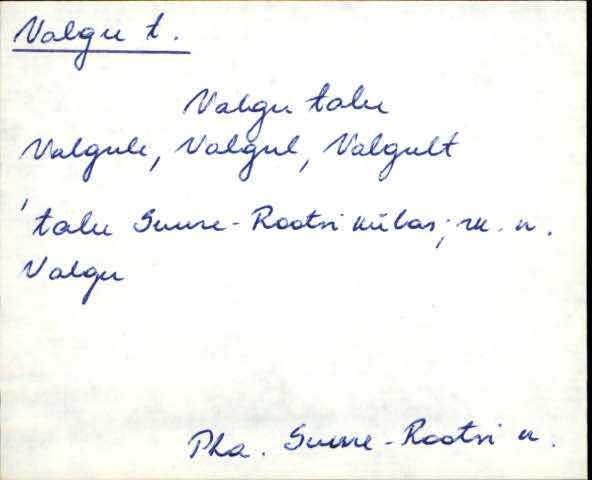 Valgu t.
Valgu talu
Valgule, Valgul, Valgult
'talu Suure-Rootsi külas; rk. n.
Valgu
Pha. Suure-Rootsi k.